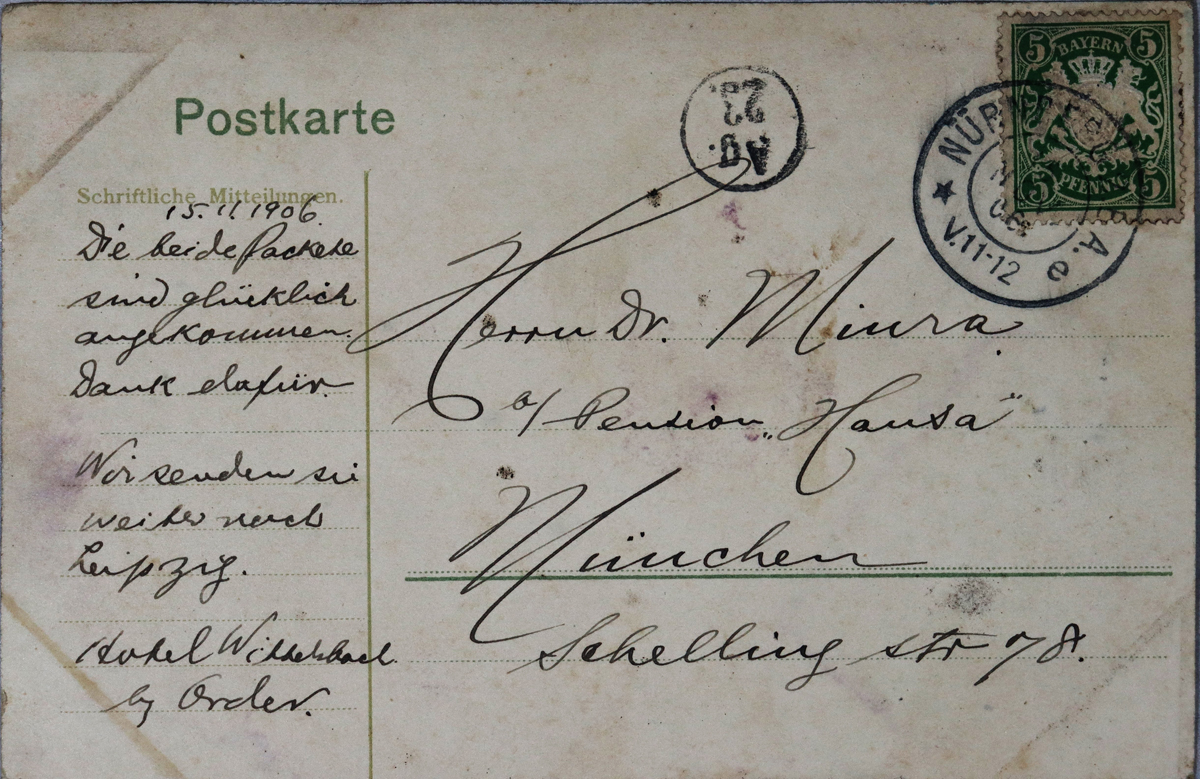 Postkarte
Schriftliche Mitteilungen.
15.11.1906.
Die beide Packete
sind glücklich
angekommen.
Dank dafür.
Wir senden sie
weiter nach
Leipzig.
Hotel Wittelsbach
by Order.
Herrn Dr. Miura
a/ Pension „Hansa"
München
Schelling str 78.
23.
AG.
5 BAYERN 5
5 PFENNIG 5
NÜRNBERG
V.11-12
A. e